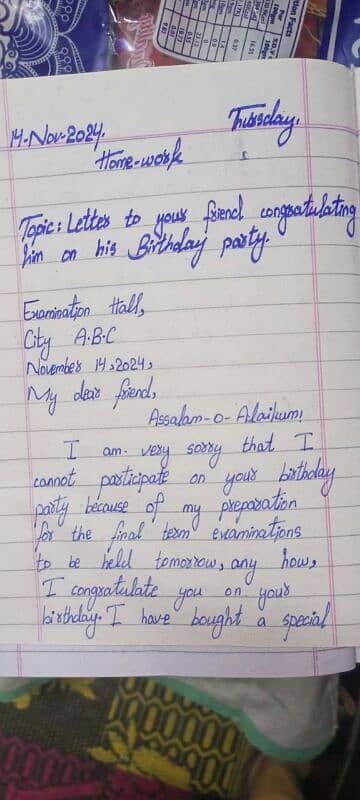 14-Nov-2024.
Thursday.
Home-work
Topic: Letter to your friend congratulating
him on his Birthday party.
Examination Hall,
City A.B.C
November 14,2024,
My dear friend,
Assalam-o-Alaikum!
I am very sorry that I
cannot participate on your birthday
party because of my preparation
for the final term examinations
to be held tomorrow, any how,
I congratulate you on your
birthday. I have bought a special